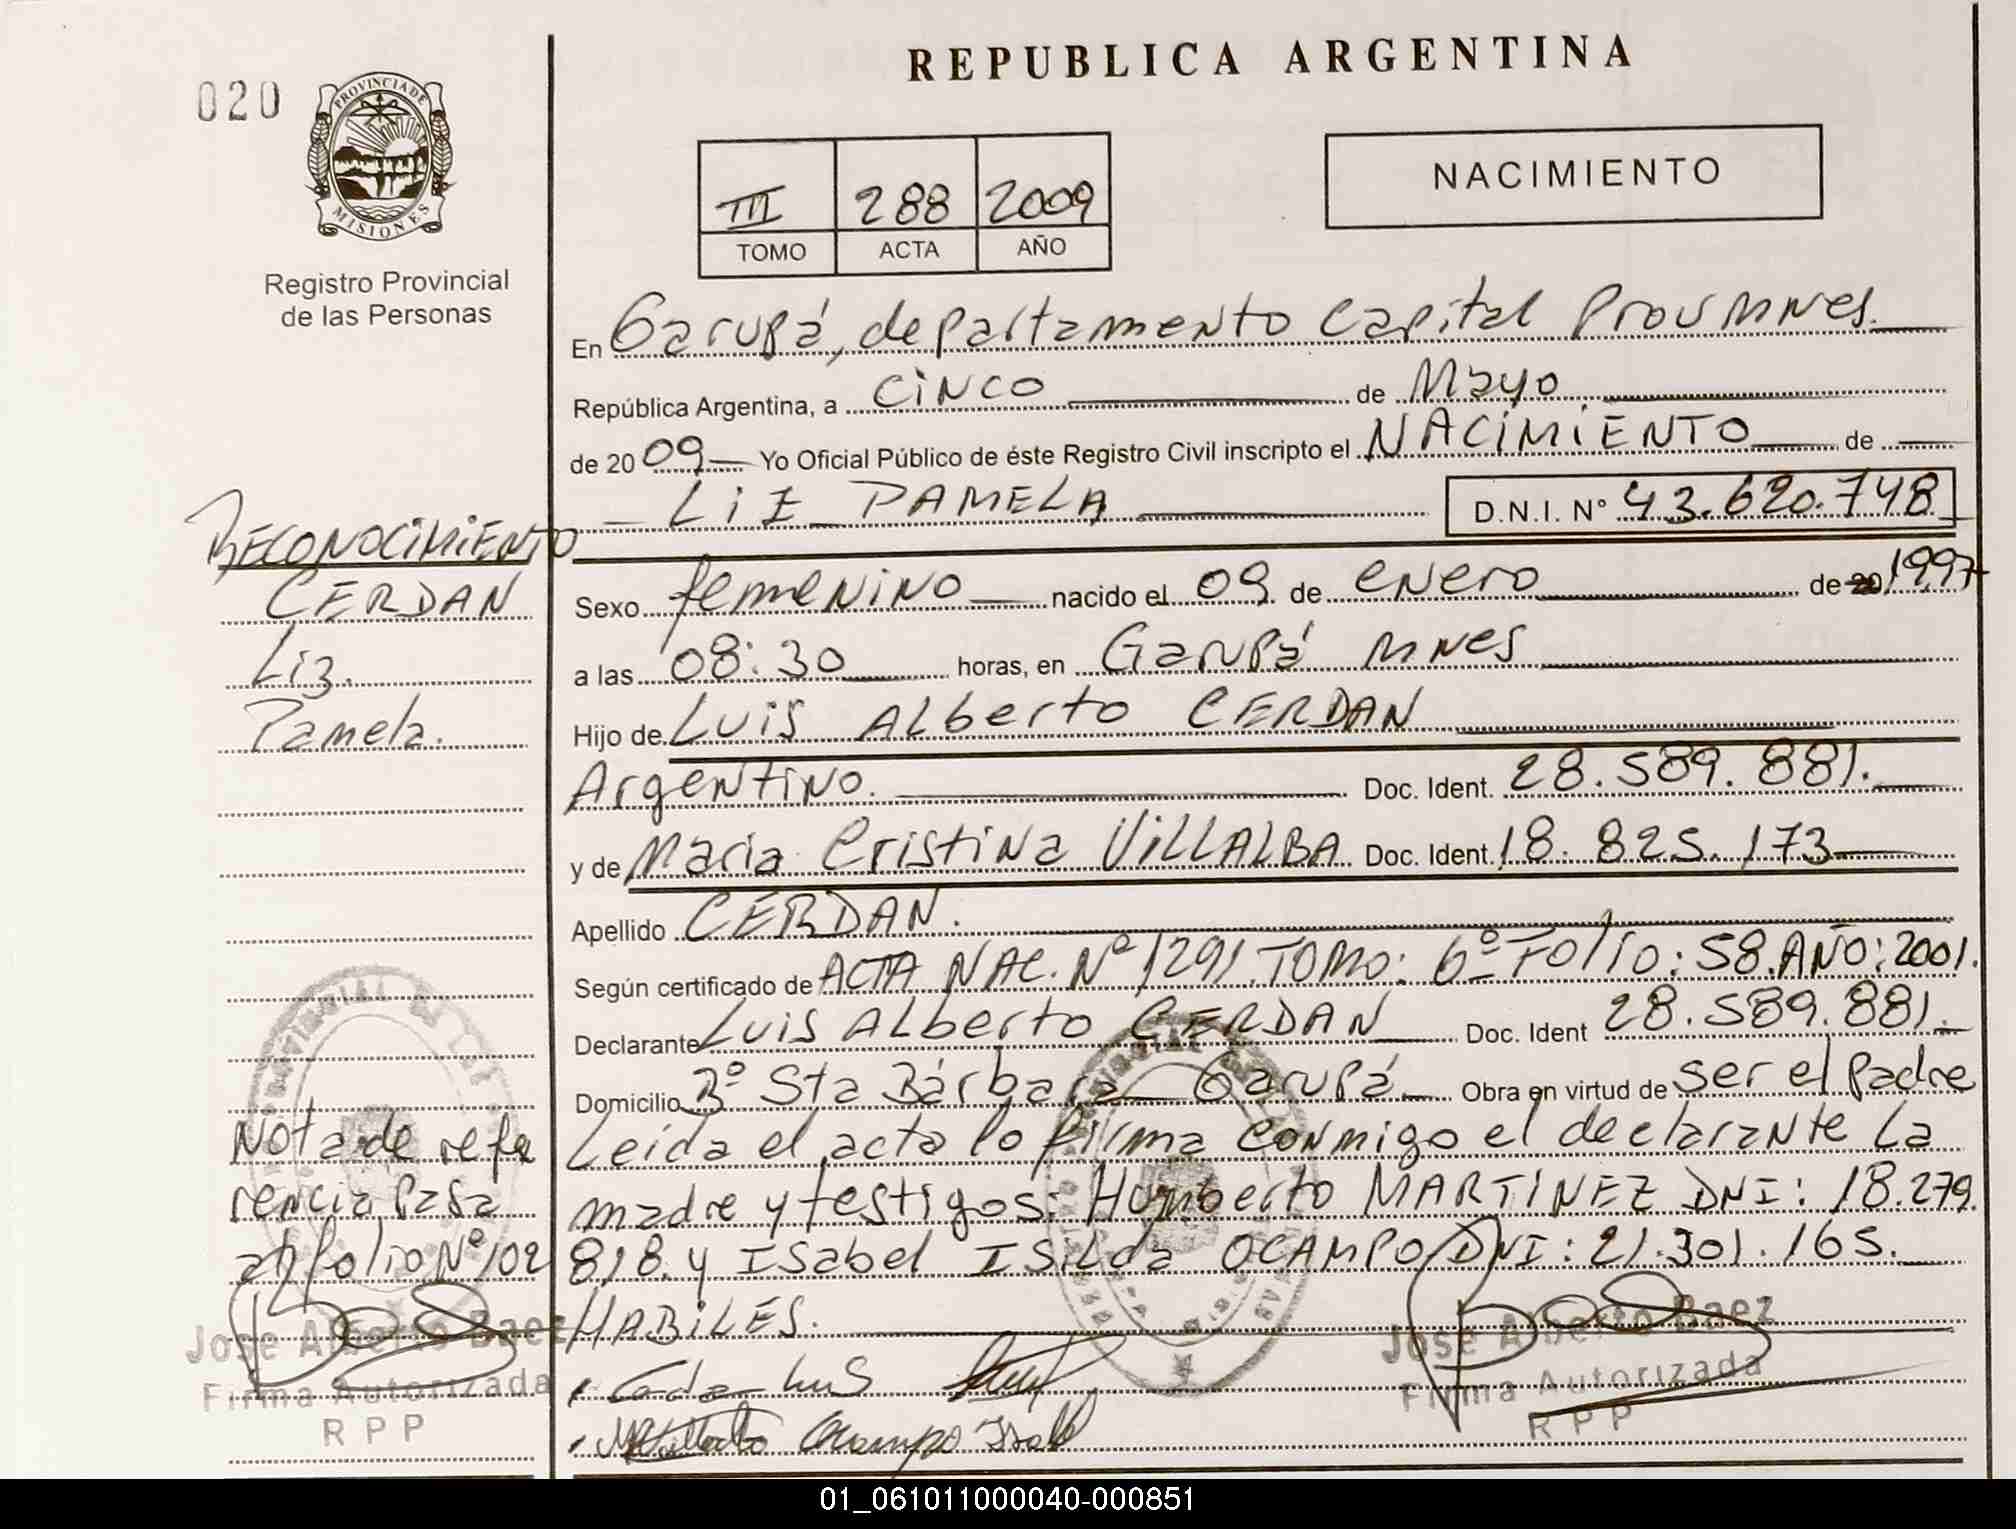 020
PROVINCIA DE
MISIONES
Registro Provincial
de las Personas
REPUBLICA ARGENTINA
III 288 2009
TOMO ACTA AÑO
NACIMIENTO
En Garupá, departamento Capital Prov Mnes.
República Argentina, a cinco de Mayo
de 2009 Yo Oficial Público de éste Registro Civil inscripto el NACIMIENTO de
LIZ PAMELA D.N.I. Nº 43.620.748
Sexo femenino nacido el 09 de enero de 20 1997
a las 08:30 horas, en Garupá Mnes
Hijo de Luis Alberto CERDAN
Argentino. Doc. Ident. 28.589.881.
y de Maria Cristina VILLALBA Doc. Ident. 18.825.173
Apellido CERDAN.
Según certificado de ACTA NAC. Nº 1291. TOMO: 6º Folio: 58. AÑO: 2001.
Declarante Luis Alberto CERDAN Doc. Ident 28.589.881.
Domicilio Bº Sta Bárbara Garupá Obra en virtud de ser el padre
Leída el acta lo firma conmigo el declarante la
madre y testigos: Humberto MARTINEZ DNI: 18.279.
818. y Isabel Isilda OCAMPO DNI: 21.301.165.
HABILES.
Ocampo Isabel
Jose Alberto Baez
Firma Autorizada
R P P
RECONOCIMIENTO
CERDAN
Liz.
Pamela.
Nota de refe
rencia pasa
al folio Nº 102
Jose Alberto Baez
Firma Autorizada
R P P
01_061011000040-000851